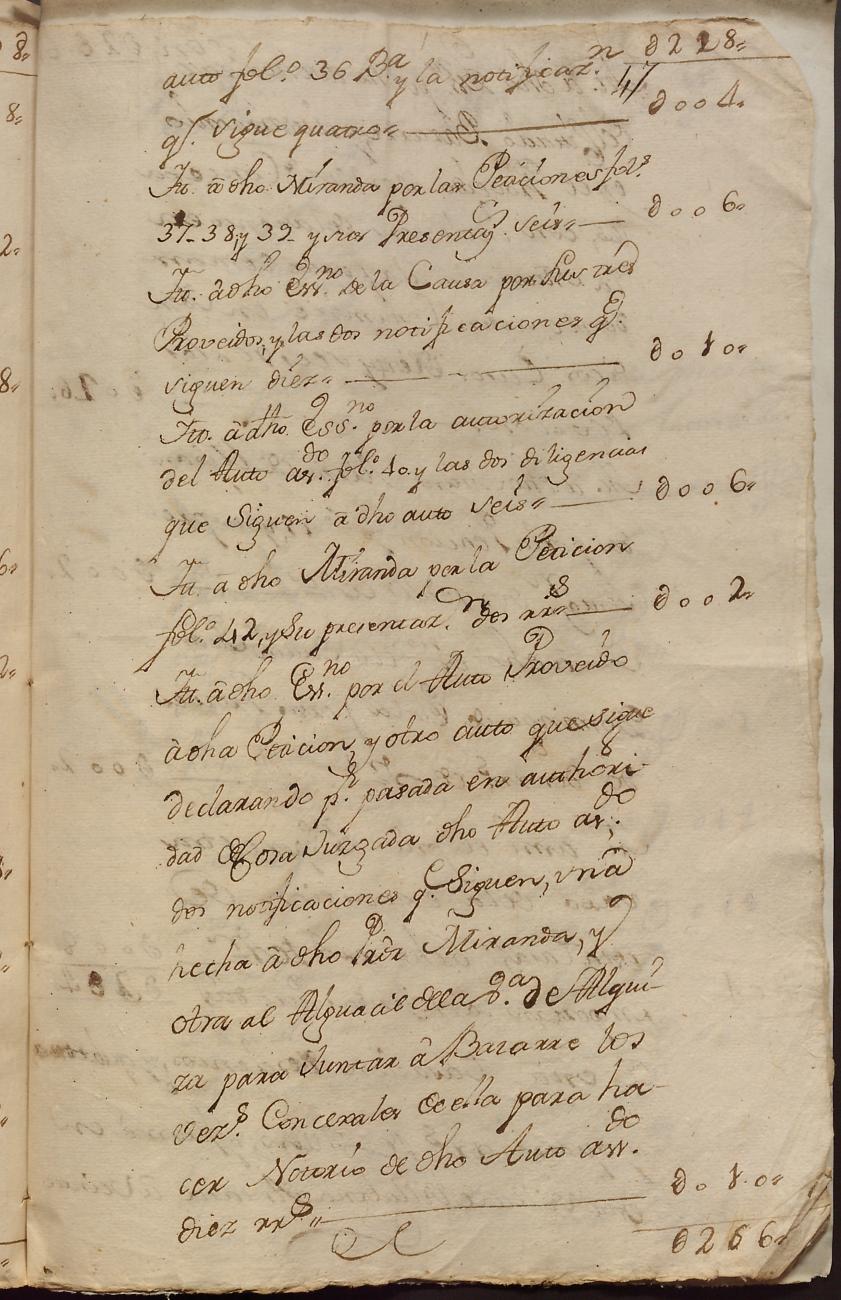 ∂228,,
auto fol.º 36 B.ª y la notificaz.n 47
q.e sigue quatro,, ∂004,,
It. â dho Miranda por las Peticiones fol.s
37-38, y 39- y sus Presentaz.s seis,, ∂006,,
It. â dho Ess.no de la Causa por sus tres
Proveidos, y las dos notificaciones q.e
siguen diez,, ∂010,,
Itt. â dtho. Ess.no por la autorizacion
del Auto ass.do fol.º 40. y las dos diligencias
que Siguen â dho auto seis,, ∂006,,
It. â dho Miranda por la Peticion
fol.º 42, y su presentaz.n dos rr.s ∂002,,
Itt. â dho. Ess.no por el Auto Proveido
â dha Peticion, y otro auto que sigue
declarando p.r pasada en authori-
dad de Cosa Juzgada dho Auto ass.do;
dos notificaciones q.e Siguen, una
hecha â dho Prôr Miranda, y
otra al Alguacil de la V.ª de Algui-
za para Juntar â Bazarre los
Vez.s Concexales de ella para ha-
cer Notorio de dho Auto ass.do
diez rr.s,, ∂010,,
∂266,,